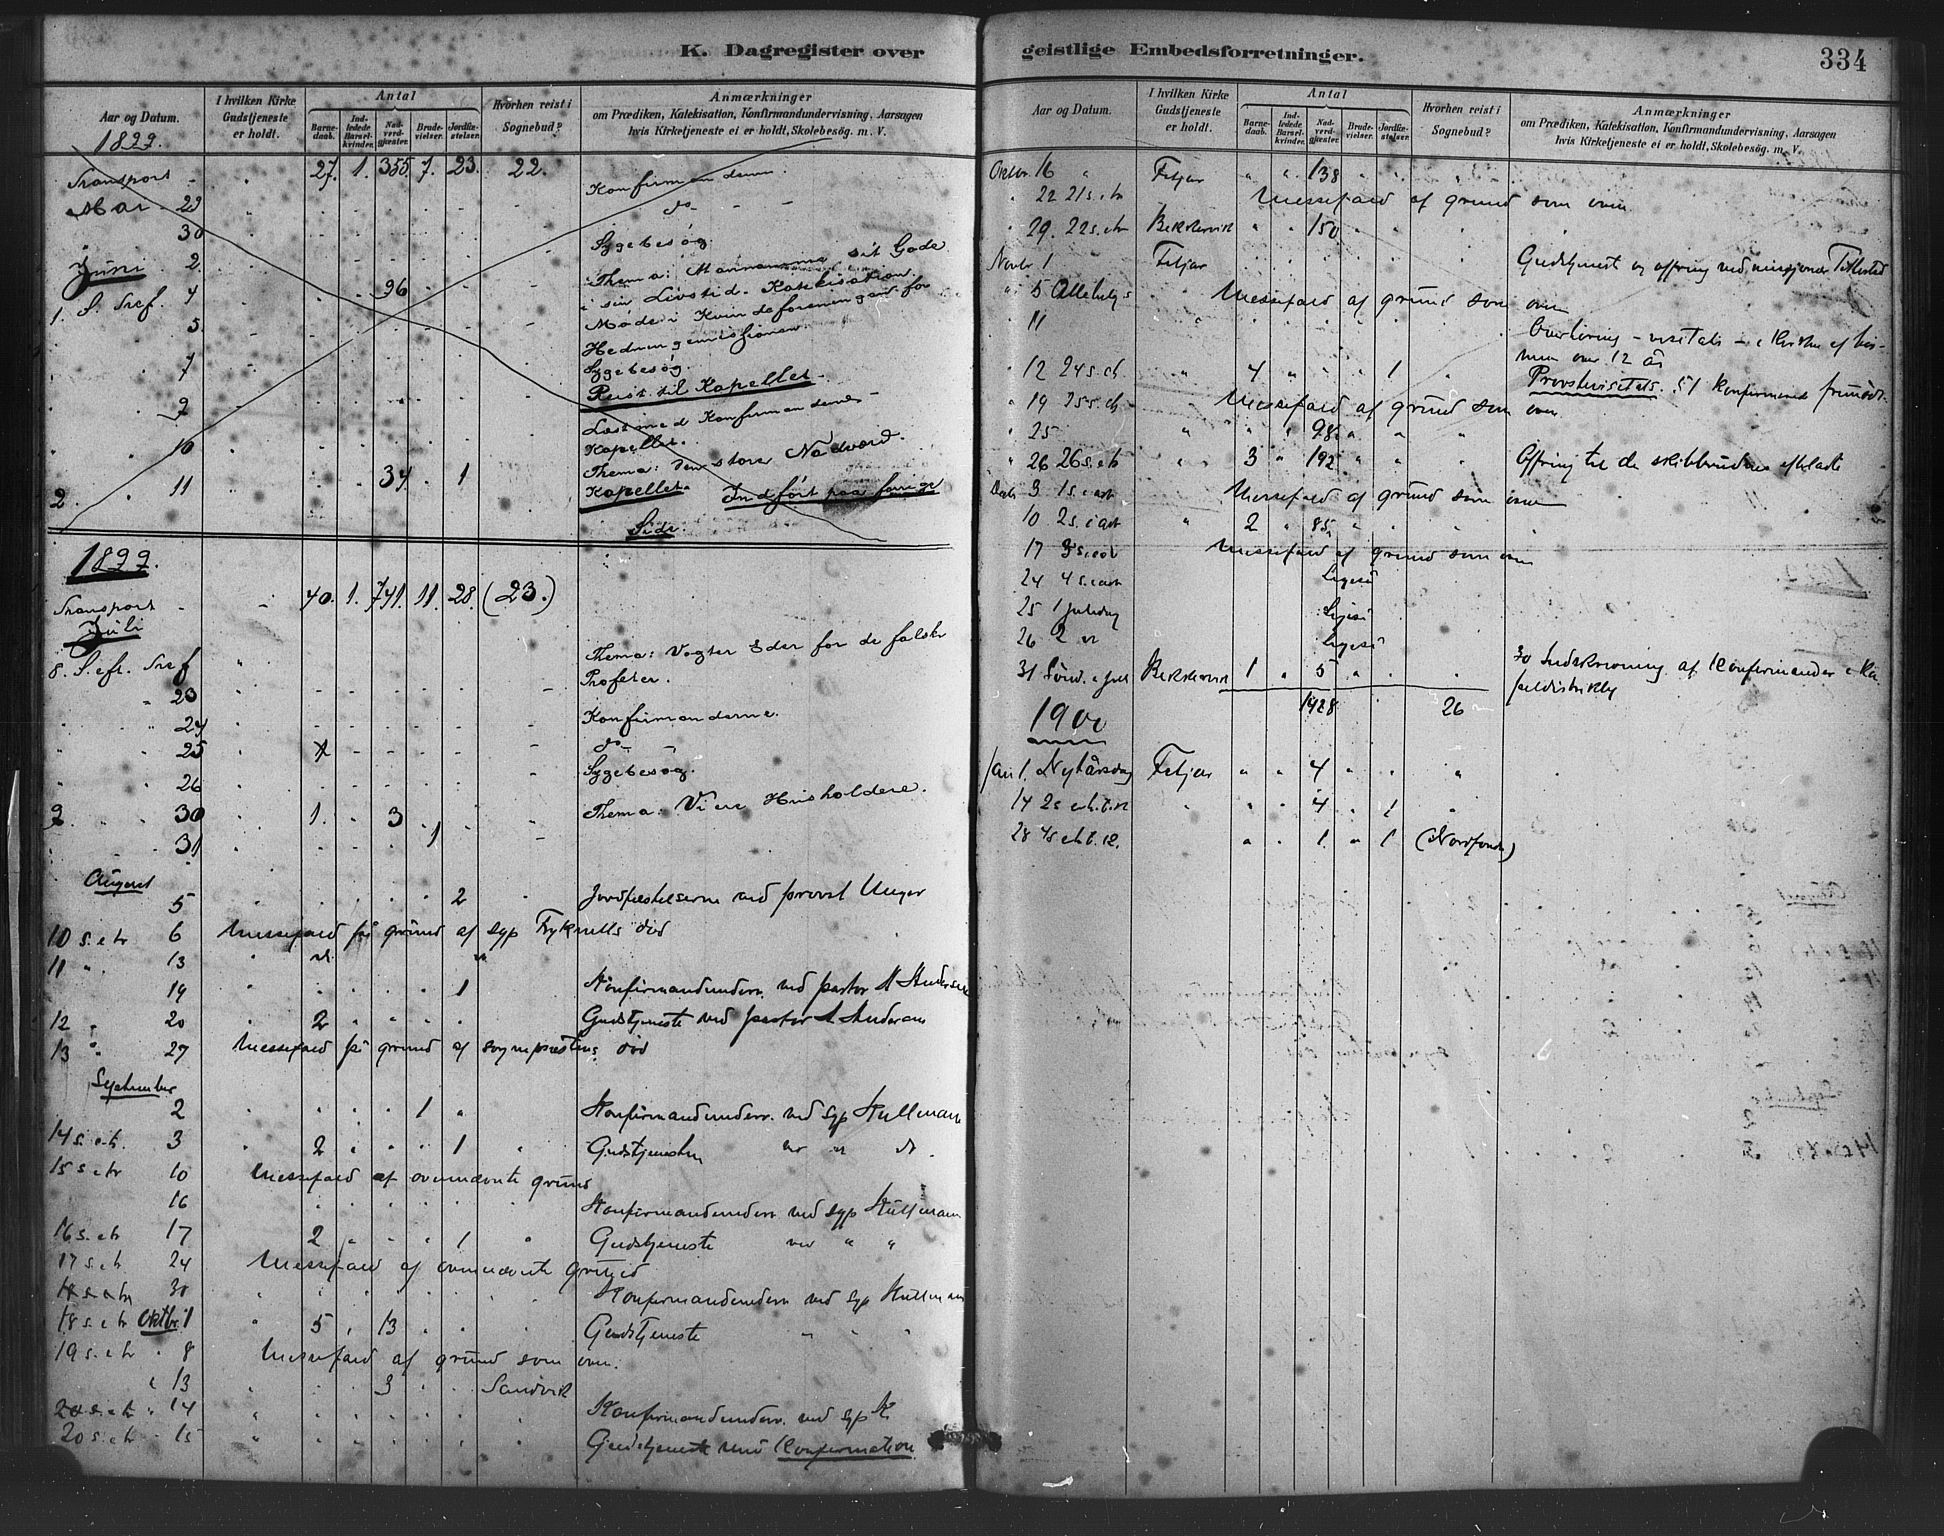 K. Dagregister over
Aar og Datum.
1899.
I hvilken Kirke Gudstjeneste er holdt.
Antal
Barnedaab.
Indledede Barselkvinder.
Nadverdgjæster.
Brudevielser.
Jordfæstelser.
Hvorhen reist i Sognebud?
Anmærkninger
om Prædiken, Katekisation, Konfirmandundervisning, Aarsagen
hvis Kirketjeneste ei er holdt, Skolebesög. m. V.
Transport - 27. 1. 355. 7. 23. 22.
Konfirmanderne.
Mai 29 do - -
30 Sygebesøg
Juni 2. Thema: sit Gode
1. S. Tref. 4 96 i sin Livstid. Katekisation.
5. Møde i Kvindeforeningen for
Hedningemissionen.
7 Sygebesøg.
Reist til Kapellet.
9 Læst med Konfirmanderne -
10 Kapellet.
Thema: Den store Nadverd.
2. 11 34 1 Kapellet. Indført paa forrige
Side.
1899.
Transport - 40. 1. 741. 11. 28. (23.)
Juli
8. S. eft. Tref Thema: Vogter Eder for de falske
Profeter.
23
24 Konfirmanderne.
25 do
26 Sygebesøg.
9 30 1. 3 Thema: Vi ere Husholdere.
31 1
August
5 2 Jordfæstelserne ved provst Unger
10 s. e tr 6 Messefald på grund af sgp død
11 13
19 1 Konfirmandunderv. ved pastor A
12 20 2 Gudstjeneste ved pastor A
13 27 Messefald på grund af sogneprestens død
September
2 1 Konfirmandunderv. ved sgp Kullmann
14 s. e tr. 3 2 1 Gudstjenesten
15 s e tr 10 Messefald af ovennævnte grund
16 Konfirmandunderv ved sgp Kullmann
16 s. e tr 17 2 1 Gudstjeneste ved " "
17 s. e tr 24 Messefald af ovennævnte grund
30 Konfirmandunderv ved sgp Kullmann
18 s. e tr Oktbr. 1 5 13 Gudstjeneste " " "
19 s. e tr 8 Messefald af grund som oven.
13 3 Sandvik
14 Konfirmandunderv. ved sgp K.
20 s. e tr 15 Gudstjeneste med Konfirmation
geistlige Embedsforretninger.
334
Aar og Datum.
I hvilken Kirke Gudstjeneste er holdt.
Antal
Barnedaab.
Indledede Barselkvinder.
Nadverdgjæster.
Brudevielser.
Jordfæstelser.
Hvorhen reist i Sognebud?
Anmærkninger
om Prædiken, Katekisation, Konfirmandundervisning, Aarsagen
hvis Kirketjeneste ei er holdt, Skolebesög. m. V.
Oktbr. 16 Fitjar 138
22 21 s. e tr Messefald af grund som oven
29. 22 s. e tr 150
Novbr 1 Fitjar Gudstjenest og offring ved
5 Messefald af grund som oven
11
over 12 år
12 24 s. e tr 4 1 Provstevisitats. 51 Konfirmerede fremødt.
19 25 s. e tr Messefald af grund som oven
25 98
26 26 s. e tr 3 192 Offring til de skibbrudne efterladte
3 1 s. i adv Messefald af grund som oven
10 2 s. i adv 2 85
17 3 s. i adv Messefald af grund som oven
24 4 s. i adv Ligeså
25 1 juledag Ligeså
26 2 Ligeså
31 Sønd. e jul 1 5 30 Indskrivning af Konfirmander i
1428 26
1900
Jan 1. Nytårsdag Fitjar 4
14 2 s e h. t. k 4 1
28 4 s e h t. k. 1 1